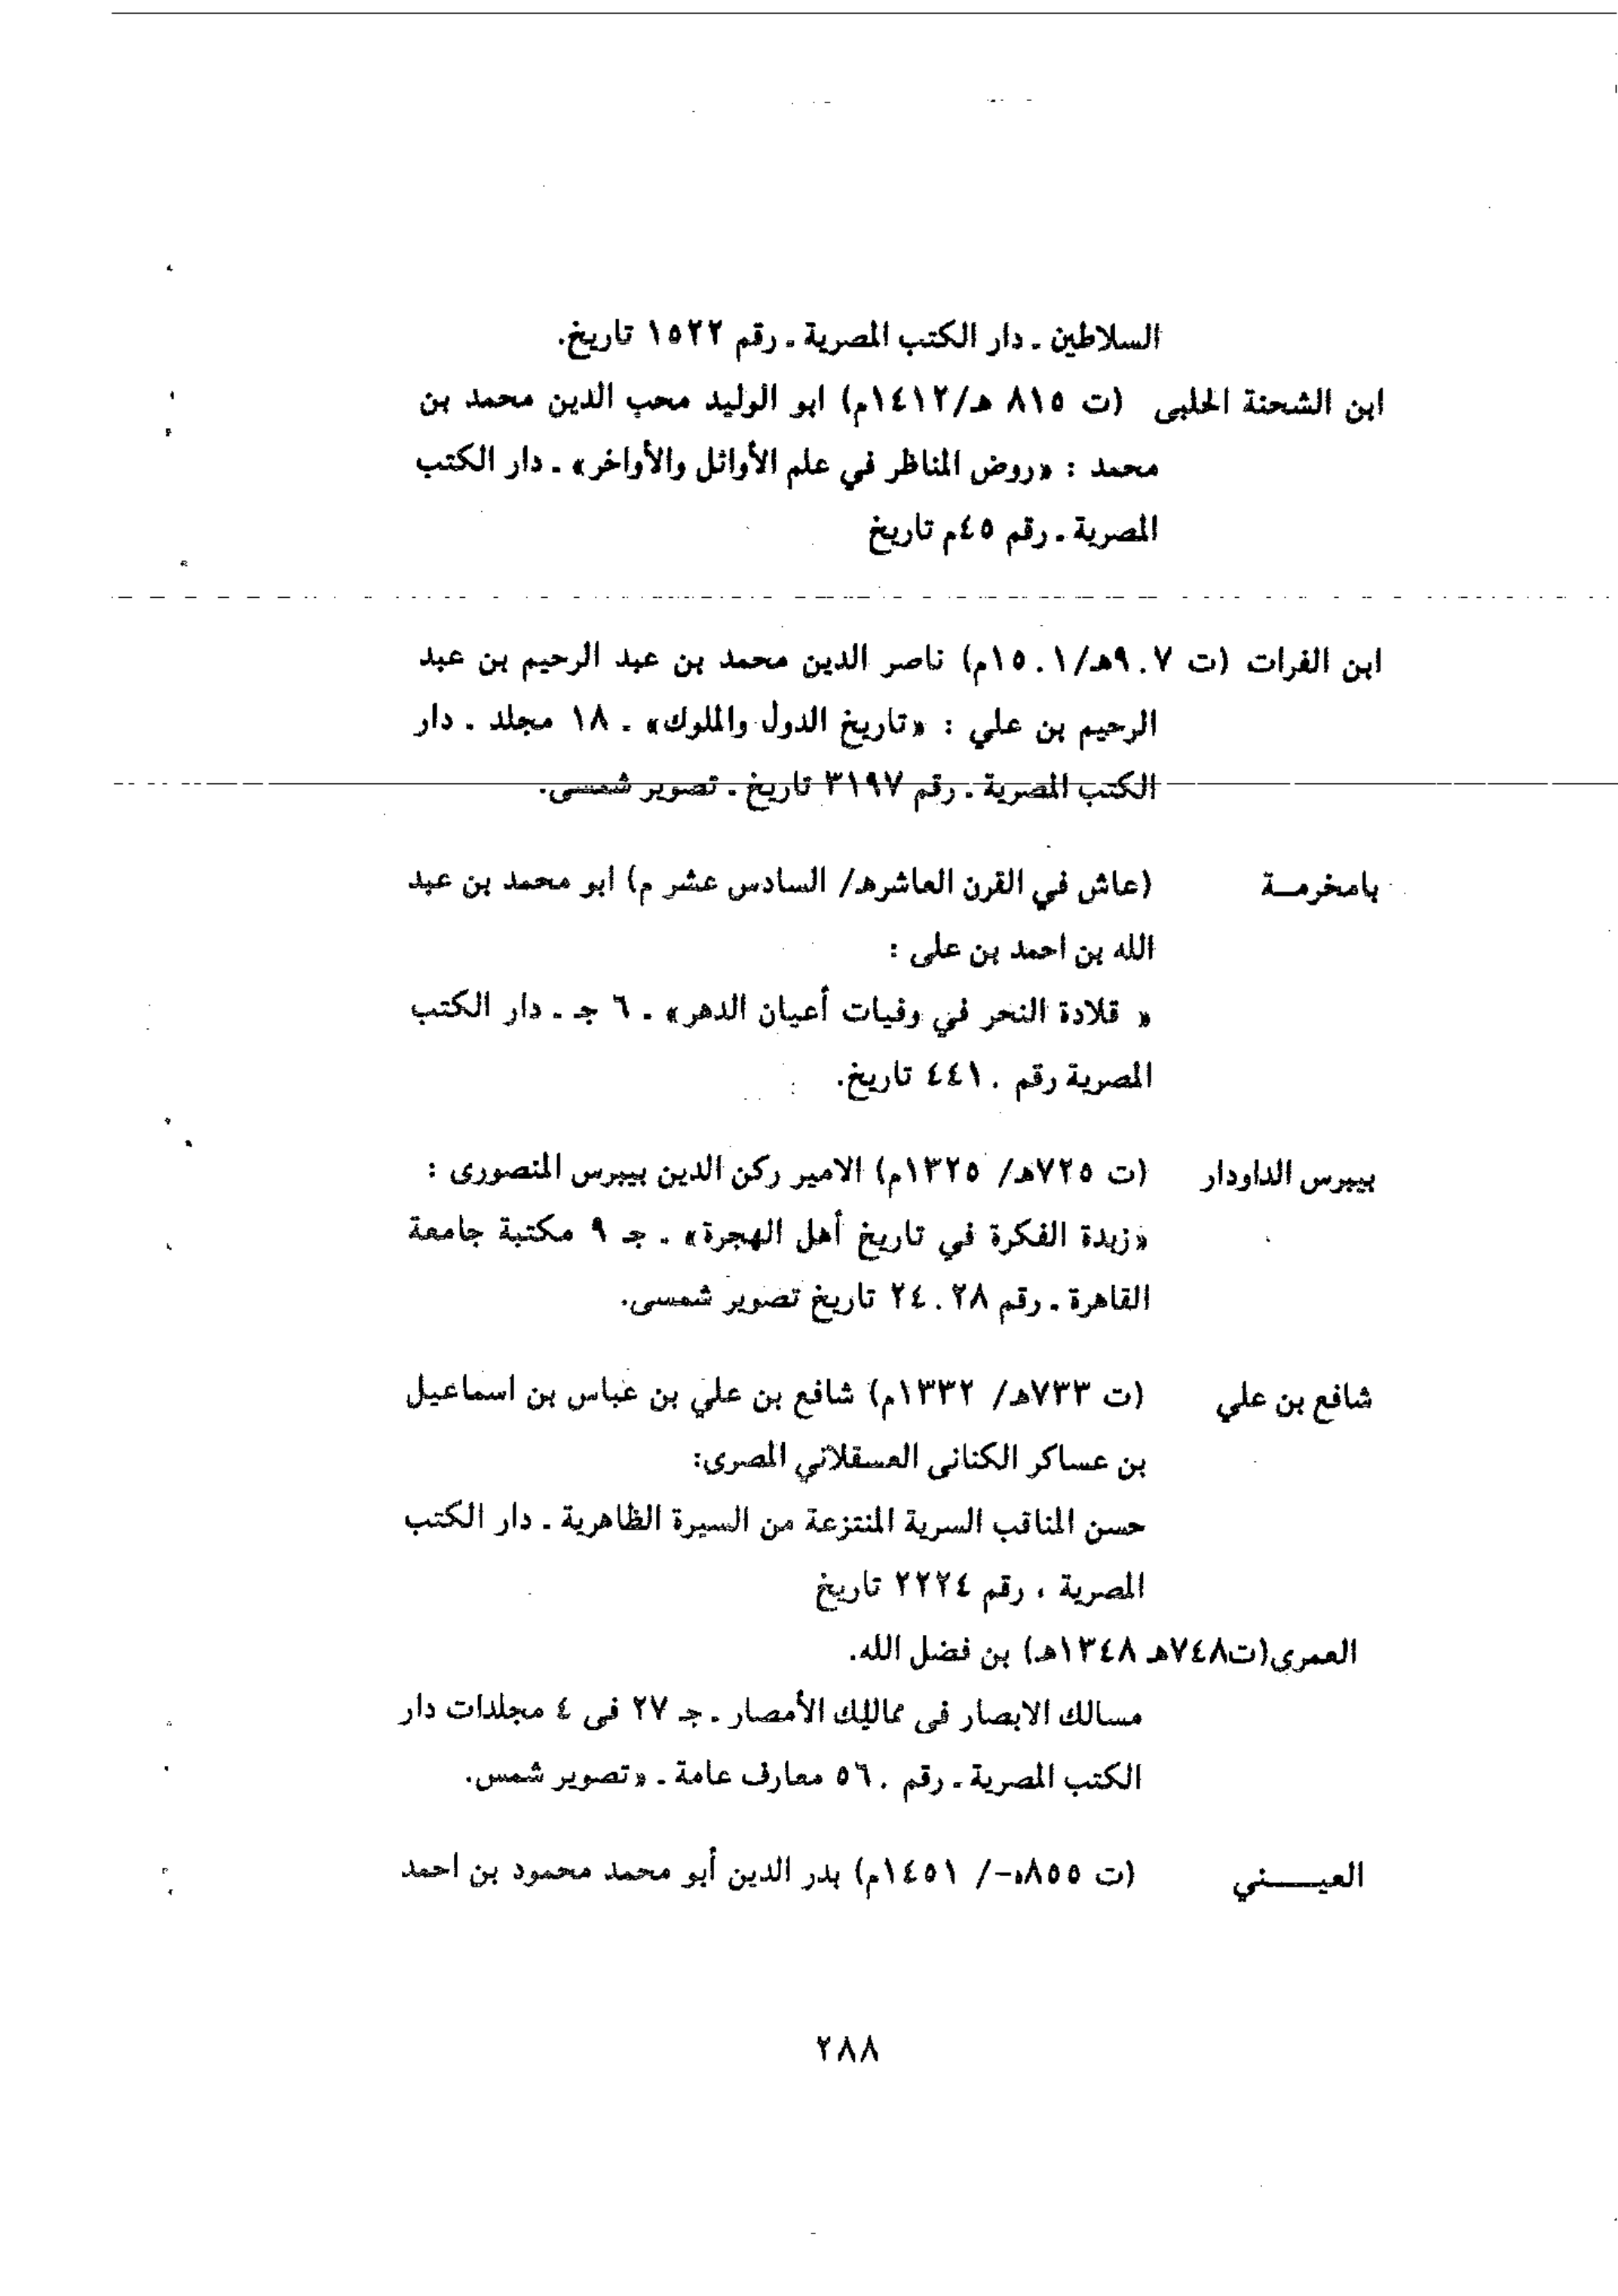 السلاطين ـ دار الكتب المصرية ـ رقم ١٥٢٢ تاريخ.
ابن الشحنة الحلبى (ت ٨١٥ هـ/١٤١٢م) ابو الوليد محب الدين محمد بن
محمد : «روض المناظر في علم الأوائل والأواخر» ـ دار الكتب
المصرية ـ رقم ٤٥م تاريخ
ابن الفرات (ت ٩٠٧هـ/١٥٠١م) ناصر الدين محمد بن عبد الرحيم بن عبد
الرحيم بن علي : «تاريخ الدول والملوك» ـ ١٨ مجلد ـ دار
الكتب المصرية ـ رقم ٣١٩٧ تاريخ ـ تصوير شمسى.
بامخرمـة (عاش في القرن العاشرهـ/ السادس عشر م) ابو محمد بن عبد
الله بن احمد بن على :
« قلادة النحر في وفيات أعيان الدهر» ـ ٦ جـ ـ دار الكتب
المصرية رقم ٤٤١٠ تاريخ.
بيبرس الداودار (ت ٧٢٥هـ/ ١٣٢٥م) الامير ركن الدين بيبرس المنصورى :
«زبدة الفكرة في تاريخ أهل الهجرة» ـ جـ ٩ مكتبة جامعة
القاهرة ـ رقم ٢٤٠٢٨ تاريخ تصوير شمسى.
شافع بن علي (ت ٧٣٣هـ/ ١٣٣٢م) شافع بن علي بن عباس بن اسماعيل
بن عساكر الكنانى العسقلاني المصرى:
حسن المناقب السرية المنتزعة من السيرة الظاهرية ـ دار الكتب
المصرية ، رقم ٢٢٢٤ تاريخ
العمرى(ت٧٤٨هـ ١٣٤٨هـ) بن فضل الله.
مسالك الابصار فى مماليك الأمصار ـ جـ ٢٧ فى ٤ مجلدات دار
الكتب المصرية ـ رقم ٥٦٠ معارف عامة ـ «تصوير شمس.
العيـــــني (ت ٨٥٥ه-/ ١٤٥١م) بدر الدين أبو محمد محمود بن احمد
٢٨٨